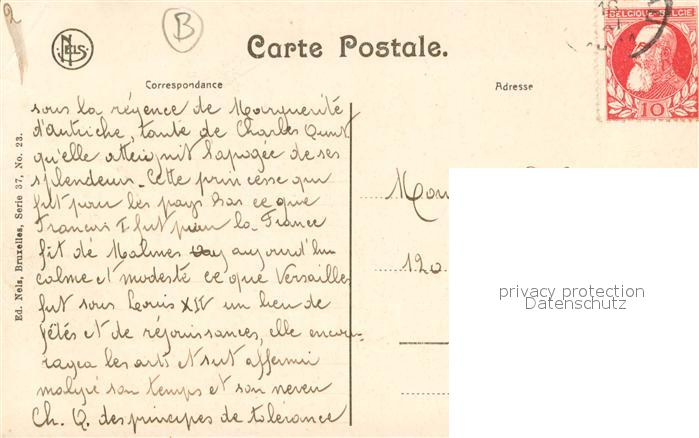 2
B
NELS
Carte Postale.
BELGIQUE-BELGIË
10
Correspondance
Adresse
sous la régence de Marguerite
d'autriche, tante de Charles Quint
qu'elle atteignit l'apogée de ses
splendeurs - Cette princesse qui
fut pour les pays bas ce que
Francois I fut pour la France
fit de Malines aujourd'hui
calme et modeste ce que Versailles
fut sous Louis XIV un lieu de
fêtés et de réjouissances, elle encou-
ragea les arts et sut affermir
malgré son temps et son neveu
Ch. Q. des principes de tolérance
Ed. Nels, Bruxelles, Serie 37, No. 23.
120
privacy protection
Datenschutz